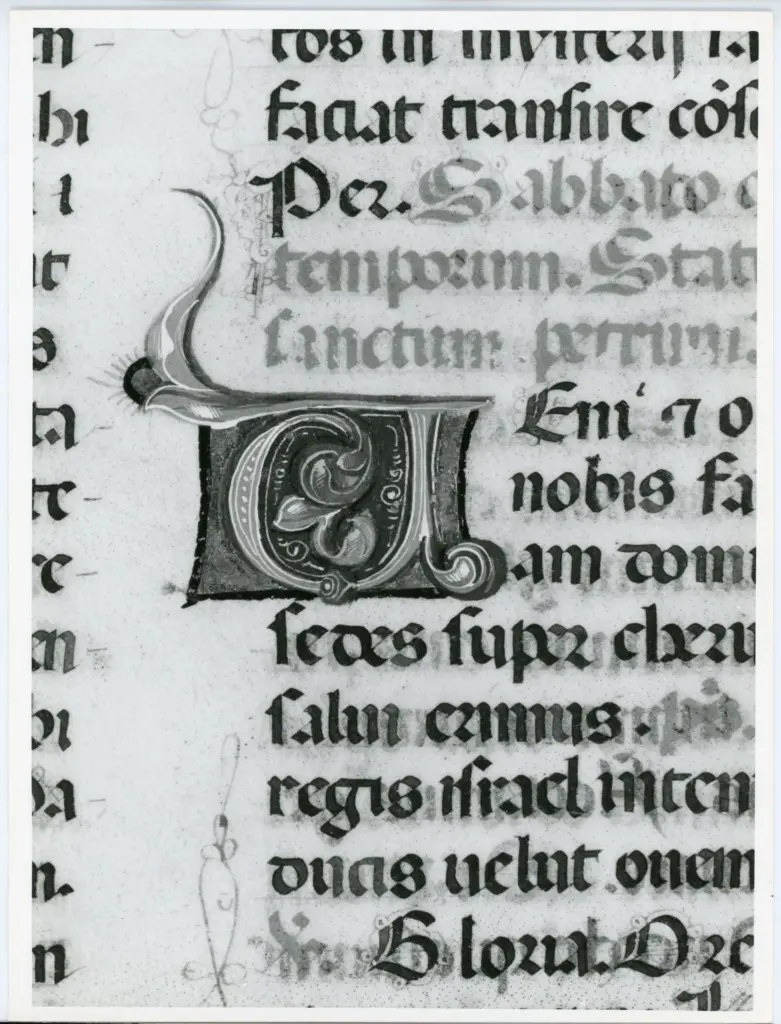 n -
hi
i
at
s
ta
te -
re -
en -
bi
da -
m.
m
tos in
faciat transire
Per. Sabbato
temporum. Stati
sanctum petrum.
Veni 7 o
nobis fa
am domi
sedes super cheru
salui erimus. ps.
regis israel inten
ducis uelut ouem
Gloria. Ore